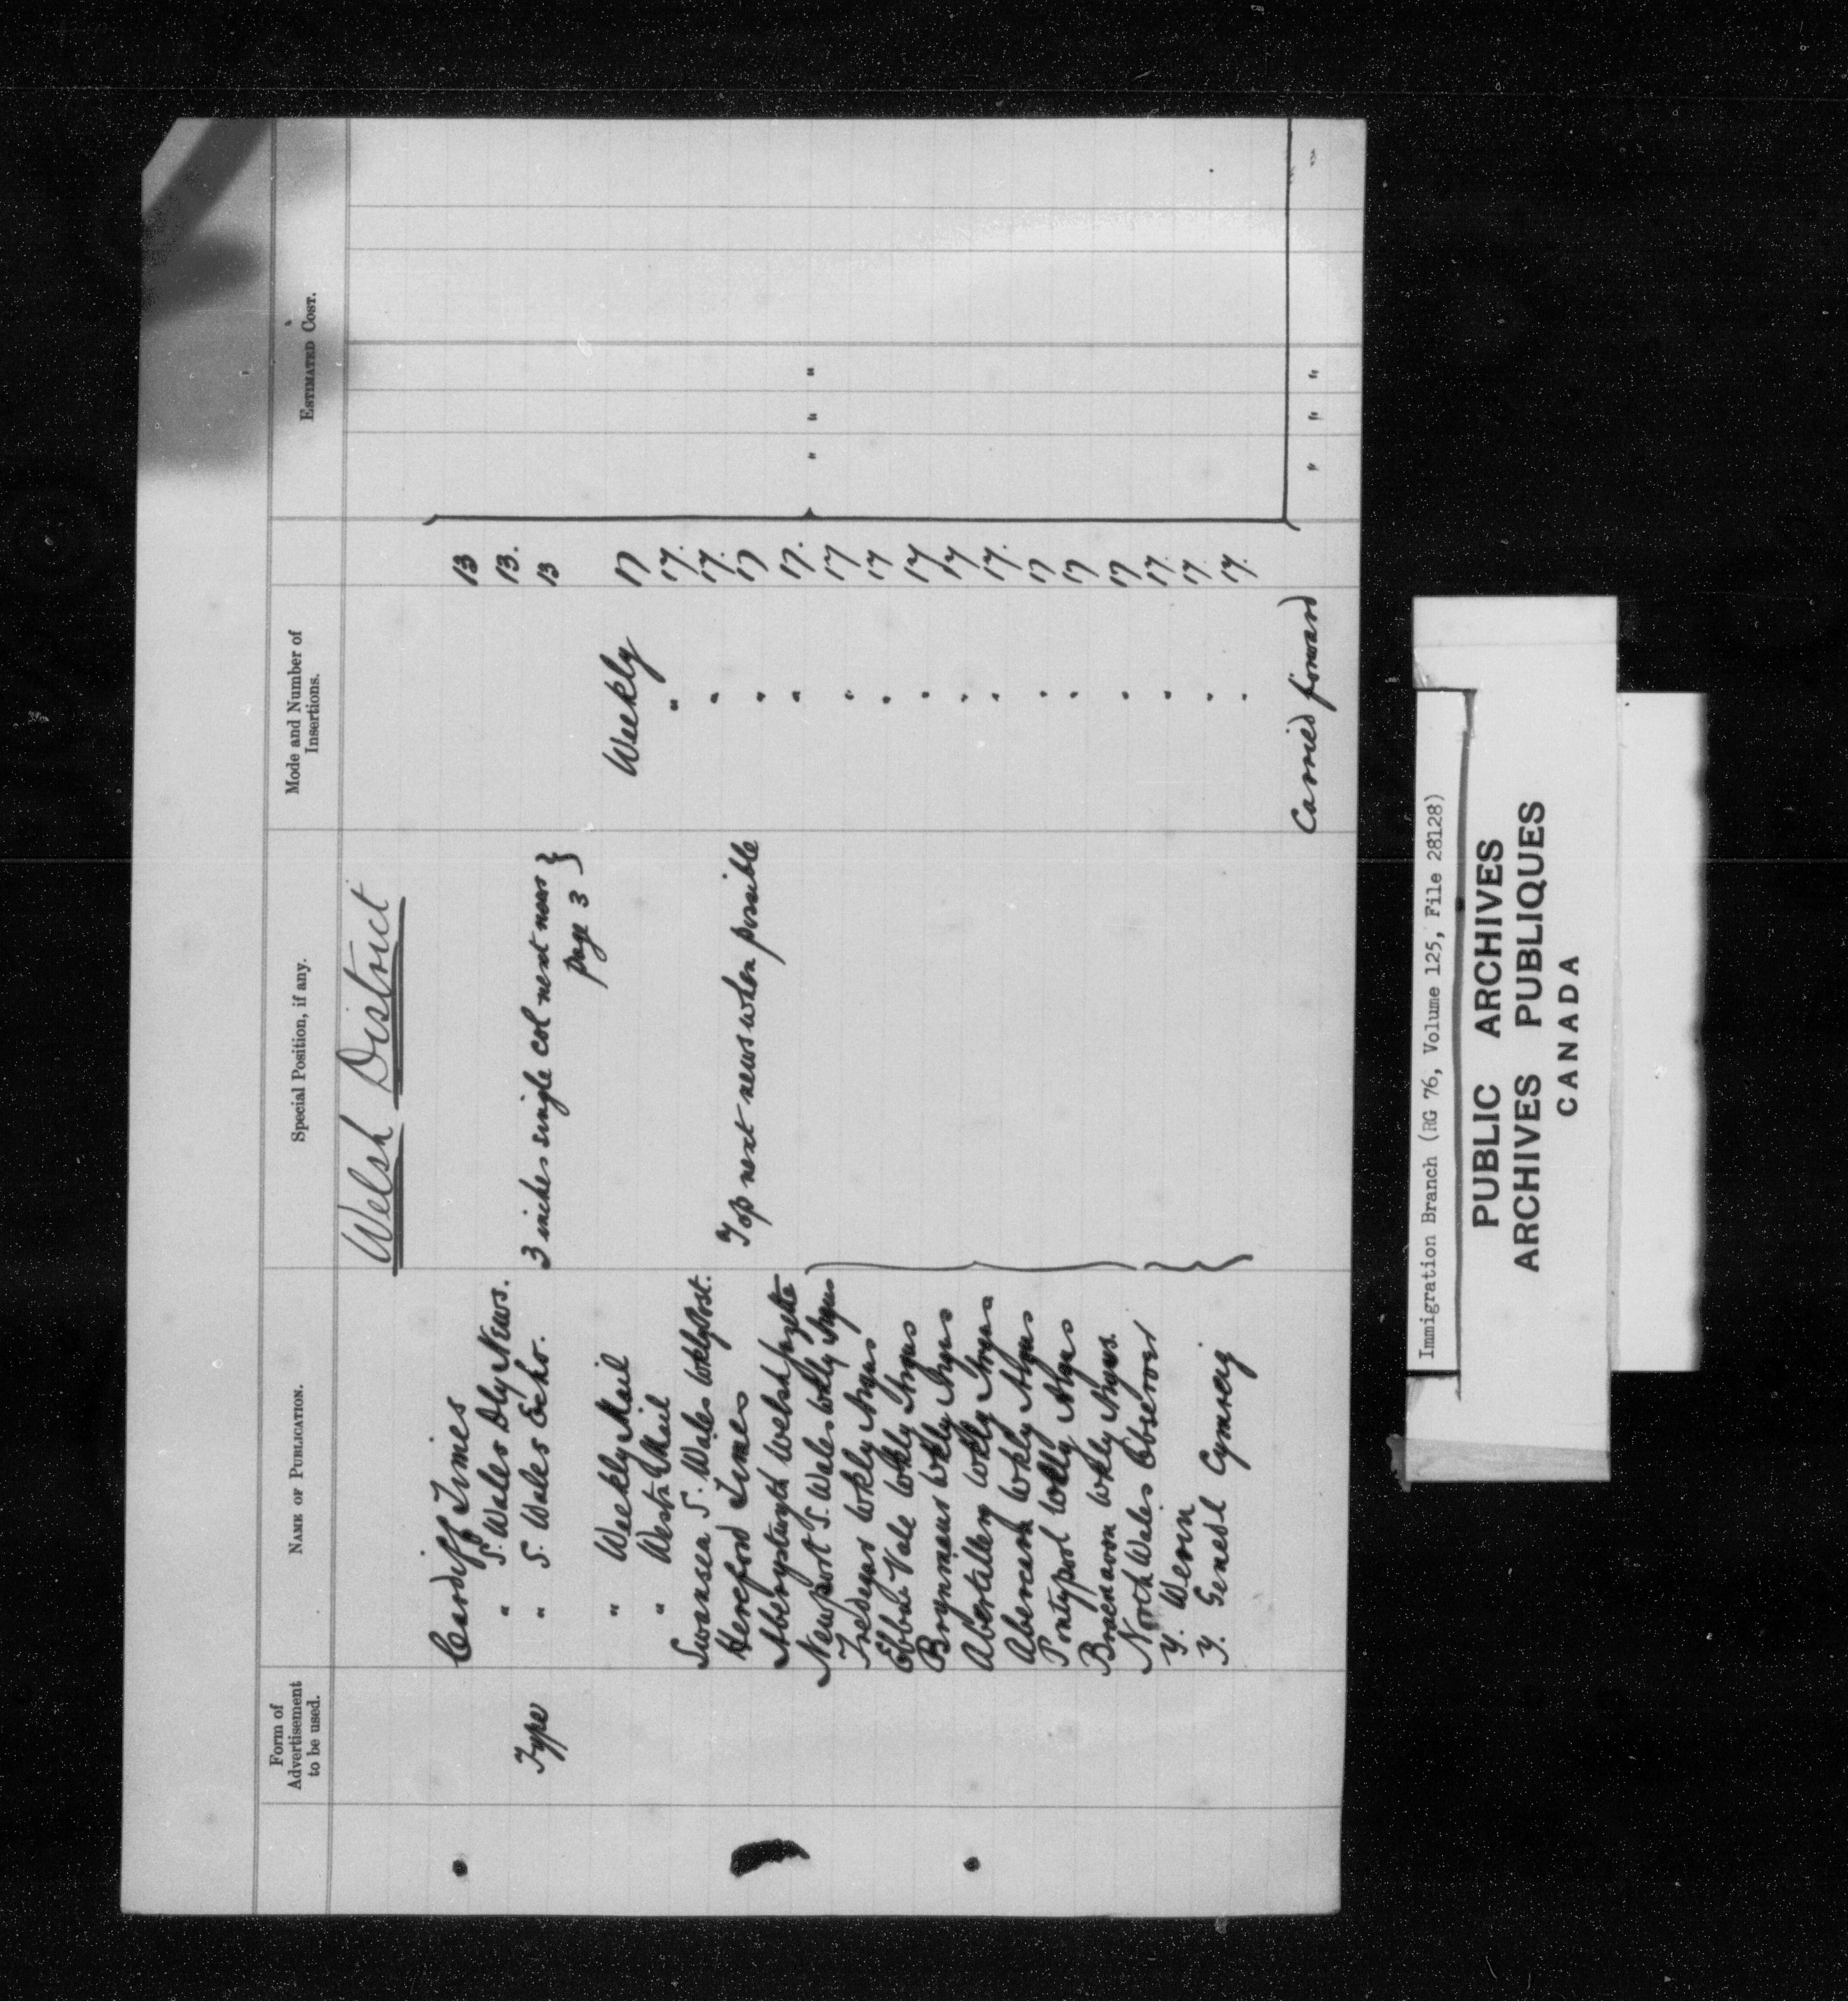 Form of Advertisement to be used. NAME OF PUBLICATION. Special Position, if any. Mode and Number of Insertions. ESTIMATED COST.
Welsh District
Cardiff Times 13
" S. Wales Dly News. 13.
Type " S. Wales Echo. 3 inches single col next news } 13
page 3
" Weekly Mail Weekly 17
" Westn Mail " 17.
Swansea S. Wales Wkly Post. " 17.
Hereford Times Top next news when possible " 17
Aberystwyth Welsh Gazette " 17.
Newport S. Wales Wkly Argus " 17 " " "
Tredegar Wkly Argus " 17
Ebbw Vale Wkly Argus " 17
Brynmawr Wkly Argus " 17
Abertillery Wkly Argus " 17.
Abercarn Wkly Argus " 17
Pontypool Wkly Argus " 17
Blaenavon Wkly Argus. " 17
North Wales Observer " 17.
Y. Werin " 17.
Y. Genedl Cymreig " 17.
Carried forward " " "
Immigration Branch (RG 76, Volume 125, File 28128)
PUBLIC ARCHIVES
ARCHIVES PUBLIQUES
CANADA